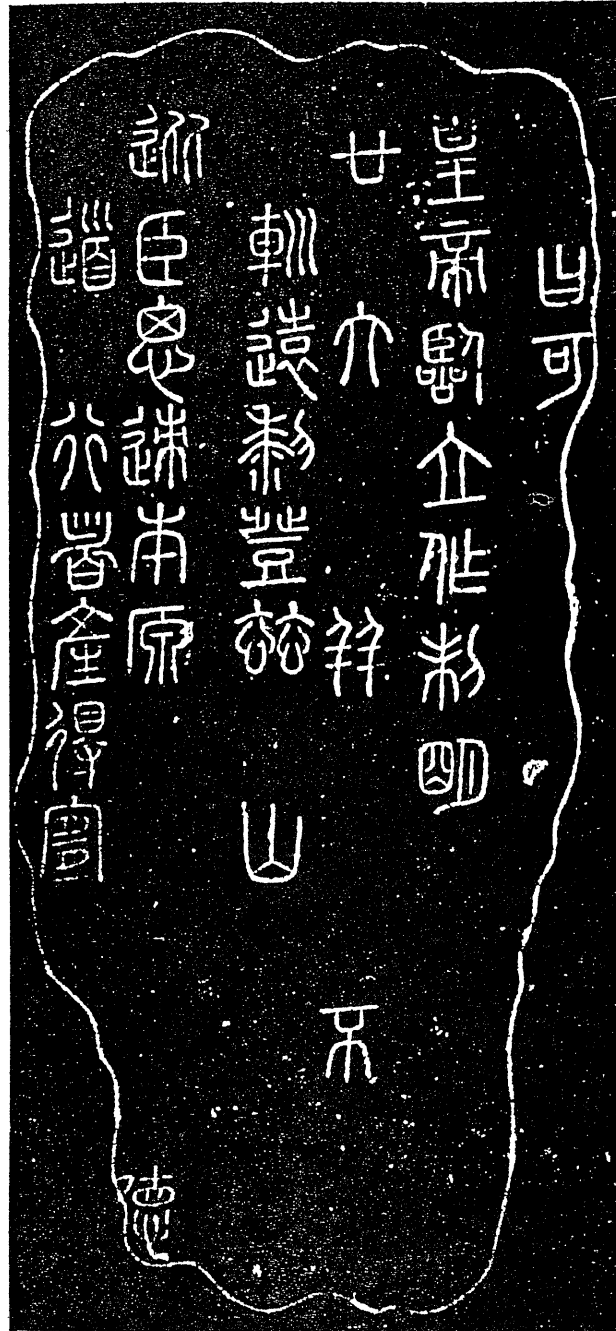 曰可
皇帝臨立作制明
廿六并不
巡遠黎登茲山
從臣思迹本原德
道行者產得宜